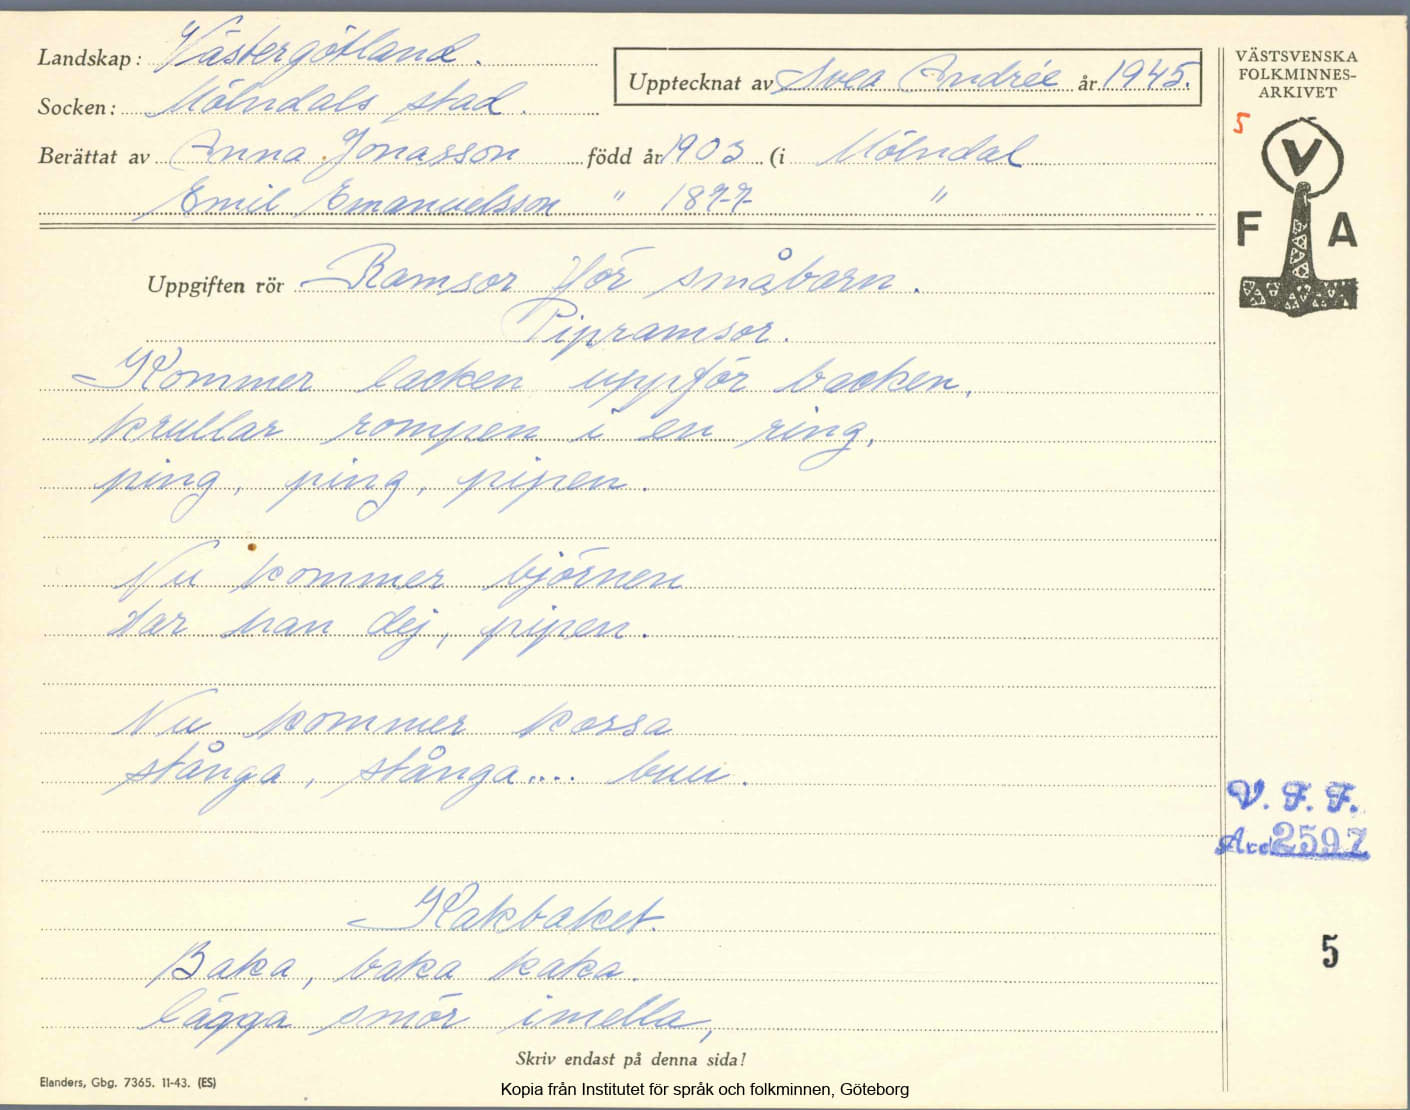 Landskap: Västergötland.
Socken: Mölndals stad.
Upptecknat av Svea Andrée år 1945.
Berättat av Anna Jonasson född år 1903 (i Mölndal
Emil Emanuelsson " 1877 "
VÄSTSVENSKA
FOLKMINNES-
ARKIVET
5
V
F A
Uppgiften rör Ramsor för småbarn.
Pipramsor.
Kommer lacken uppför backen,
krullar rompen i en ring,
ping, ping, pipen.
Nu kommer björnen
tar han dej, pipen.
Nu kommer kossa
stånga, stånga.... buu.
V. F. F.
Acc 2597
Kakbaket.
5
Baka, baka kaka.
lägga smör imella,
Skriv endast på denna sida!
Elanders, Gbg. 7365. 11-43. (ES)
Kopia från Institutet för språk och folkminnen, Göteborg